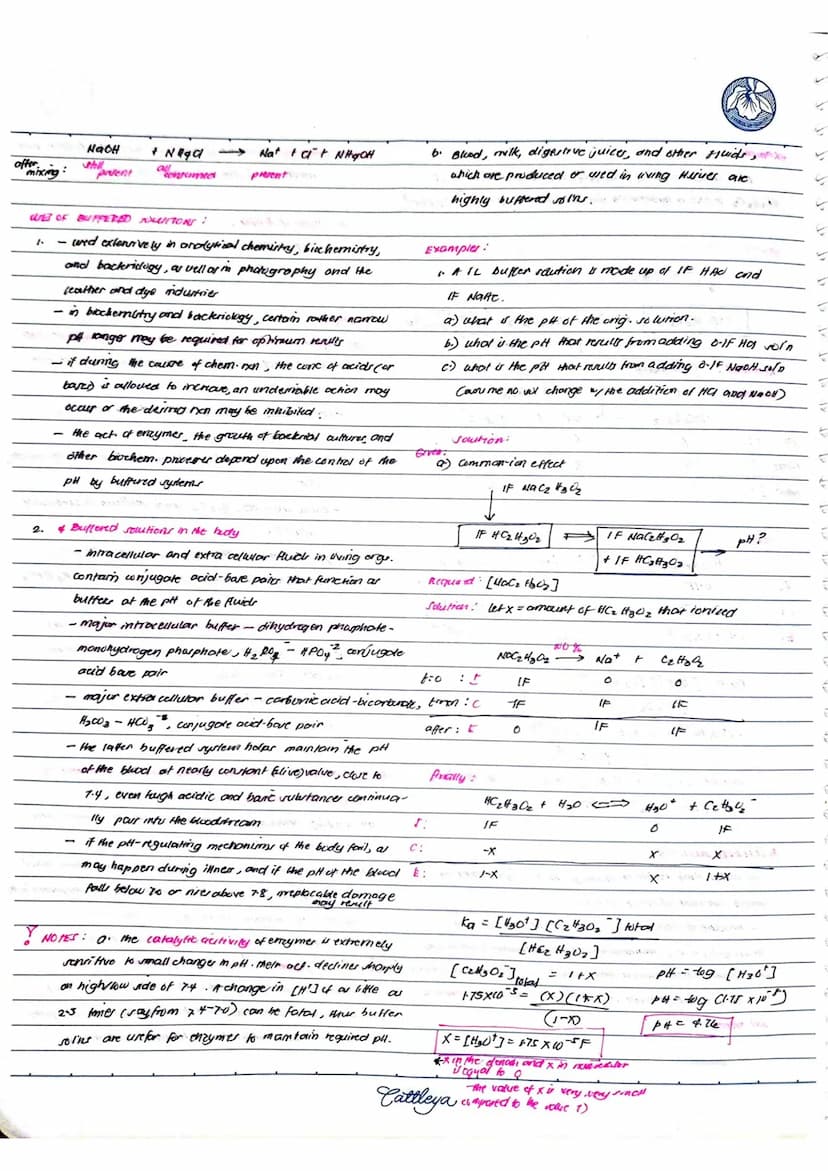 NaOH + NH4Cl → Na+ + Cl- + NH4OH
after mixing: still present all consumed present
USES OF BUFFERED SOLUTIONS:
1. - used extensively in analytical chemistry, biochemistry,
and bacteriology, as well as in photography and the
leather and dye industries
- in biochemistry and bacteriology, certain rather narrow
pH ranges may be required for optimum results
- if during the course of chem. rxn, the conc of acids (or
bases) is allowed to increase, an undesirable action may
occur or the desired rxn may be inhibited.
- the act. of enzymes, the growth of bacterial cultures, and
other biochem. processes depend upon the control of the
pH by buffered systems
2. Buffered solutions in the body
- intracellular and extra cellular fluids in living orgs.
contain conjugate acid-base pairs that function as
buffers at the pH of the fluids
- major intracellular buffer - dihydrogen phosphate-
monohydrogen phosphate, H2PO4- - HPO4-2, conjugate
acid base pair
- major extra cellular buffer - carbonic acid-bicarbonate,
H2CO3 - HCO3-, conjugate acid-base pair
- the latter buffered system helps maintain the pH
of the blood at nearly constant (alive) value, close to
7.4, even though acidic and basic substances continua-
lly pass into the bloodstream
- if the pH-regulating mechanisms of the body fail, as
may happen during illness, and if the pH of the blood
falls below 7.0 or rises above 7.8, irreplacable damage
may result
! NOTES: a. the catalytic activity of enzymes is extremely
sensitive to small changes in pH. their act. declines sharply
on high/low side of 7.4. A change in [H+] of as little as
2-3 times (say from 7.4-7.0) can be fatal, thus buffer
solns are useful for enzymes to maintain required pH.
b. Blood, milk, digestive juices, and other fluids,
which are produced or used in living tissues are
highly buffered solns.
Examples:
1. A 1L buffer solution is made up of 1F HAc and
1F NaAc.
a) what is the pH of the orig. solution.
b) what is the pH that results from adding 0.1F HCl soln
c) what is the pH that results from adding 0.1F NaOH soln
(assume no vol change w/ the addition of HCl and NaOH)
Solution:
Given: a) common-ion effect
1F NaC2H3O2
1F HC2H3O2 ⇌ 1F NaC2H3O2 + 1F HC2H3O2 → pH?
Required: [HC2H3O2]
Solution: let x = amount of HC2H3O2 that ionized
NaC2H3O2 100% → Na+ + C2H3O2
t=0 : I 1F 0 0
t=rxn : C -1F 1F 1F
after : E 0 1F 1F
Finally:
HC2H3O2 + H2O ⇌ H3O+ + C2H3O2-
I: 1F 0 1F
C: -x x x
E: 1-x x 1+x
Ka = [H3O+] [C2H3O2-] total
[HC2H3O2]
[C2H3O2-] total = 1+x
1.75x10-5 = (x)(1+x)
(1-x)
X = [H3O+] = 1.75 x 10-5 F
pH = -log [H3O+]
pH = -log (1.75 x 10-5)
pH = 4.76
*x in the denom and x in numerator
is equal to 0
-the value of x is very, very small
compared to the value 1)
Cattleya